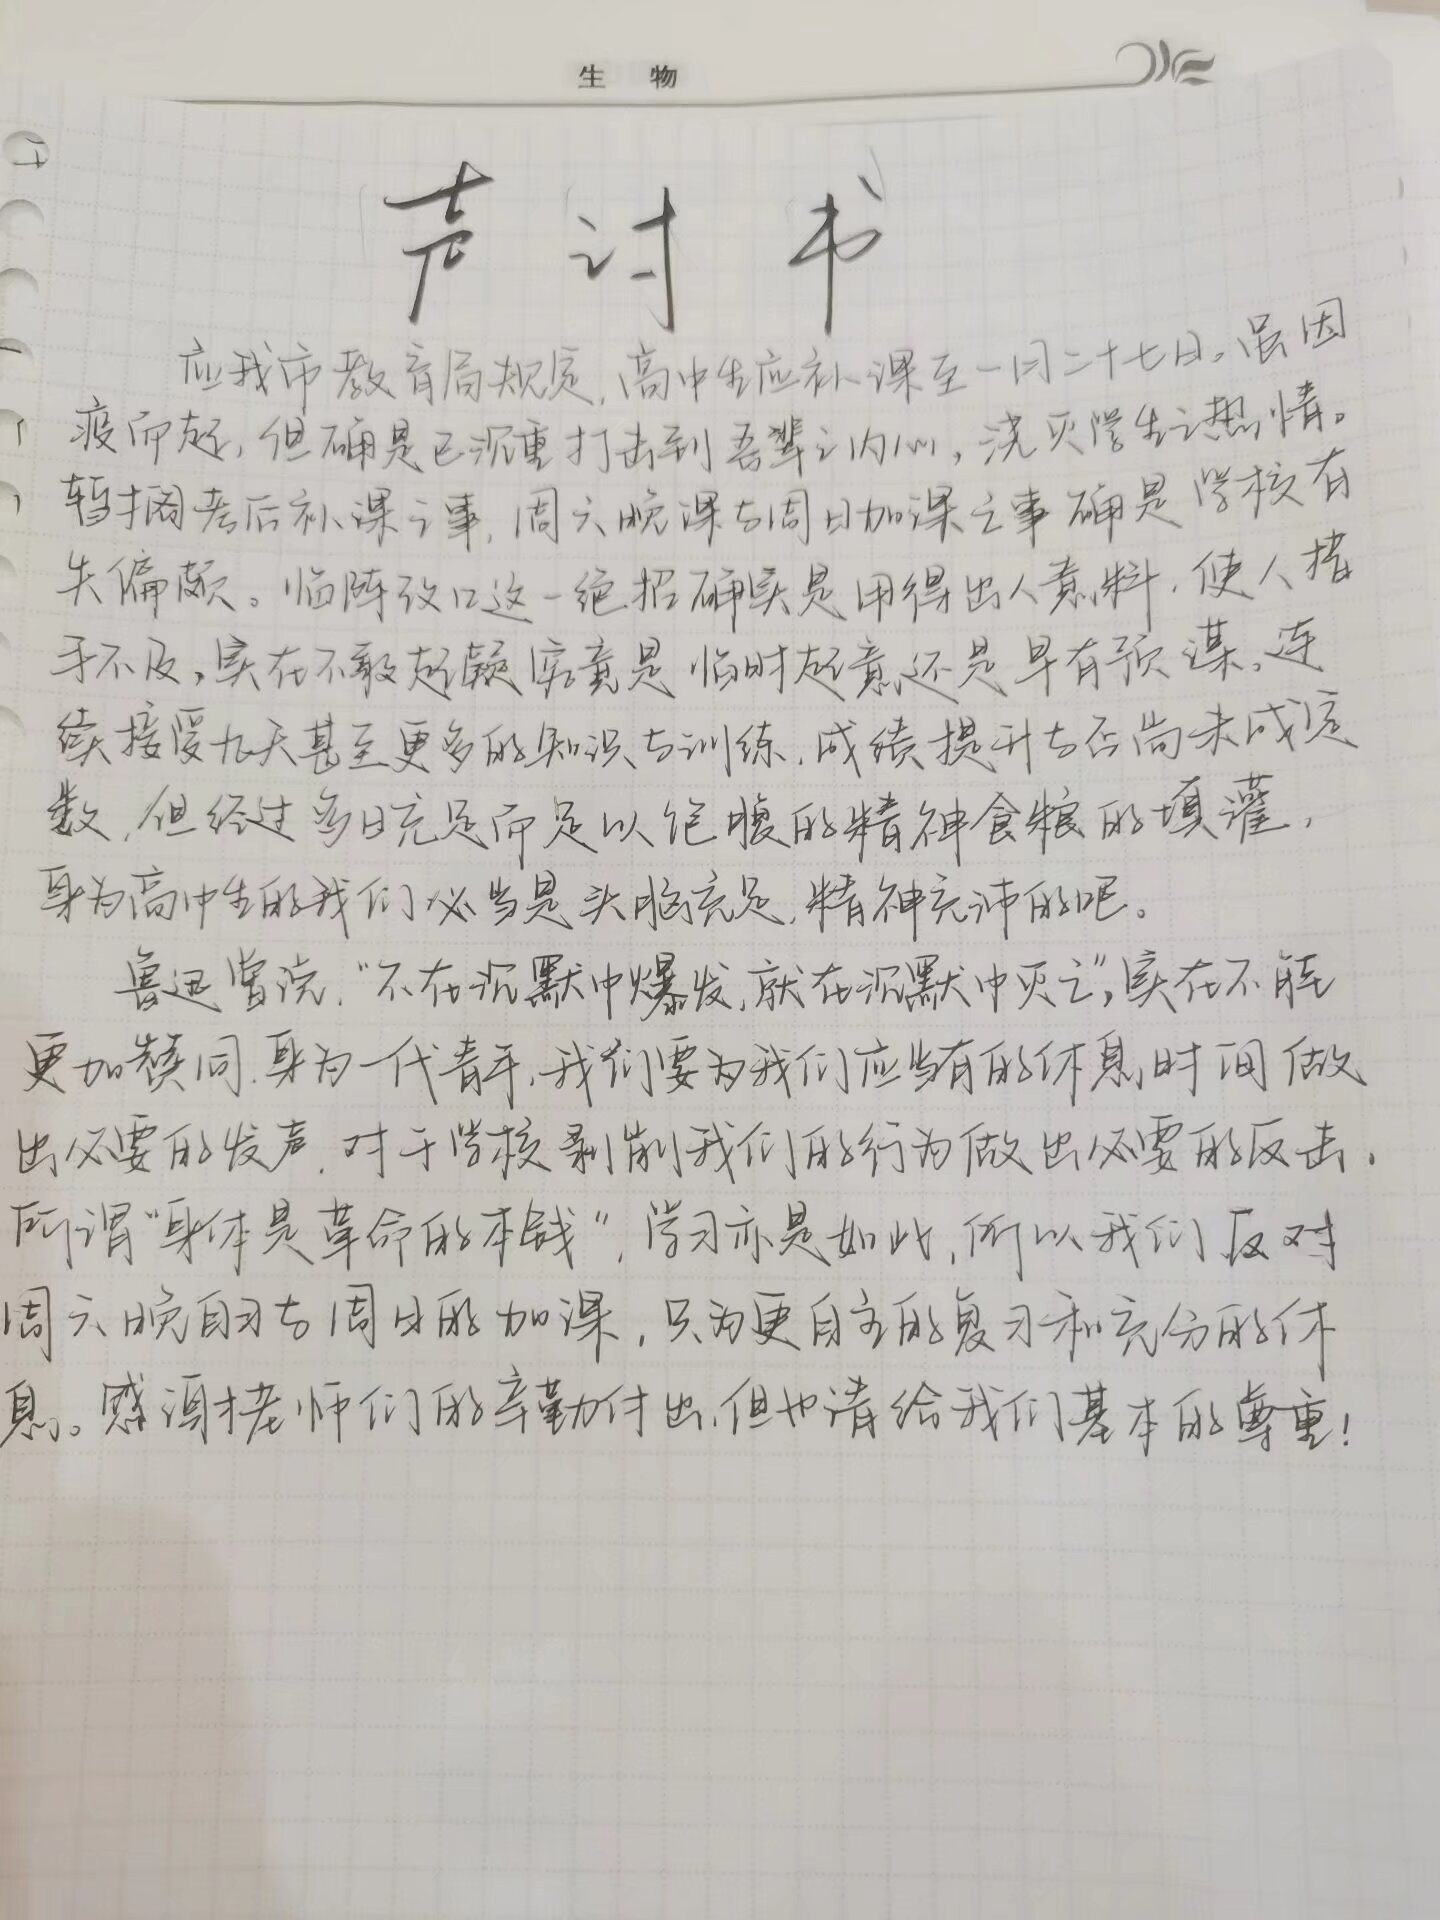 生 物
声讨书
应我市教育局规定,高中生应补课至一月二十七日。虽因
疫而起,但确是已沉重打击到吾辈之内心,浇灭学生之热情。
暂搁考后补课之事,周六晚课与周日加课之事确是学校有
失偏颇。临阵改口这一绝招确实是用得出人意料,使人措
手不及,实在不敢起疑究竟是临时起意还是早有预谋。连
续接受九天甚至更多的知识与训练,成绩提升与否尚未成定
数,但经过多日充足而足以饱腹的精神食粮的填灌,
身为高中生的我们必当是头脑充足,精神充沛的呢。
鲁迅曾说,“不在沉默中爆发,就在沉默中灭亡”,实在不能
更加赞同.身为一代青年,我们要为我们应当有的休息时间做
出必要的发声,对于学校剥削我们的行为做出必要的反击.
所谓“身体是革命的本钱”,学习亦是如此,所以我们反对
周六晚自习与周日的加课,只为更自主的复习和充分的休
息。感谢老师们的辛勤付出,但也请给我们基本的尊重!